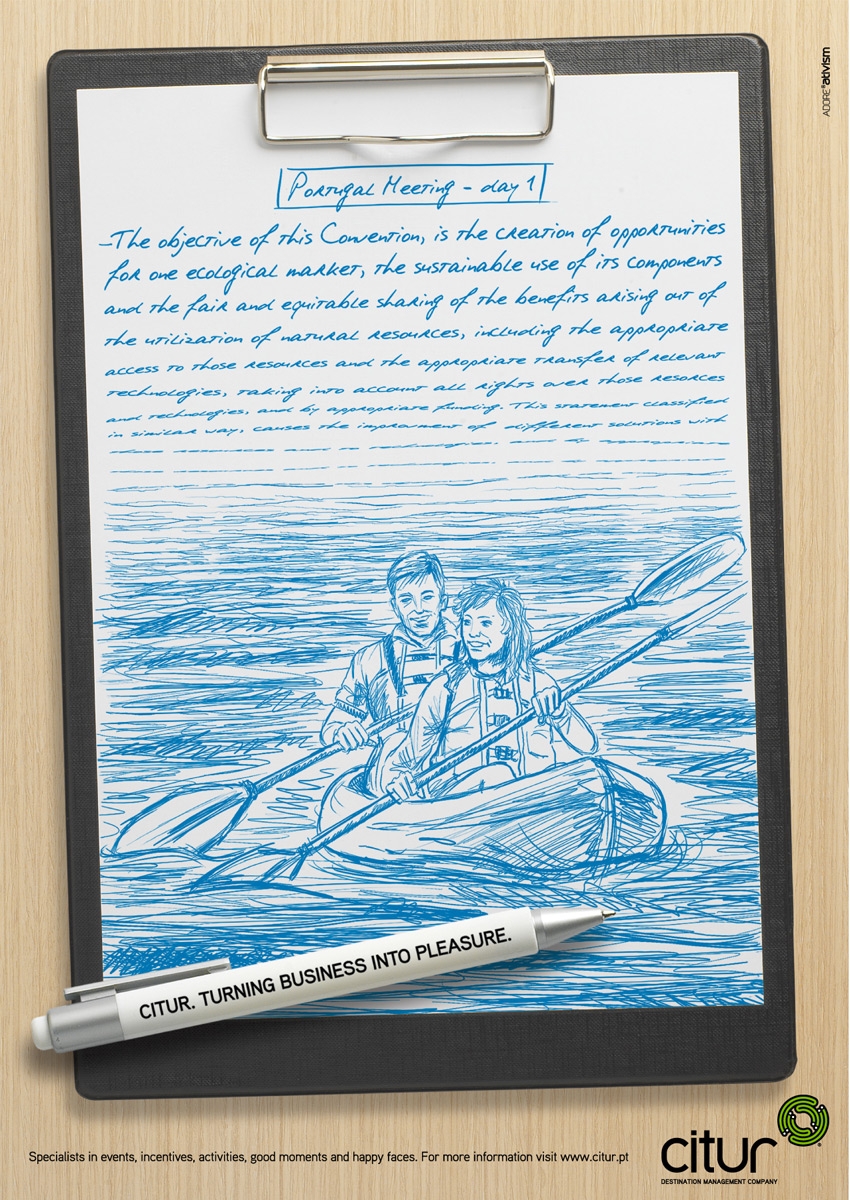 ADDRE®ativism
PORTUGAL MEETING - day 1
-The objective of this Convention, is the creation of opportunities
for one ecological market, the sustainable use of its components
and the fair and equitable sharing of the benefits arising out of
the utilization of natural resources, including the appropriate
access to those resources and the appropriate transfer of relevant
technologies, taking into account all rights over those resorces
and technologies, and by appropriate funding. This statement classified
in similar way, causes the improvment of different solutions with
resources and to technologies. and by appropriate
CITUR. TURNING BUSINESS INTO PLEASURE.
Specialists in events, incentives, activities, good moments and happy faces. For more information visit www.citur.pt
citur®
DESTINATION MANAGEMENT COMPANY